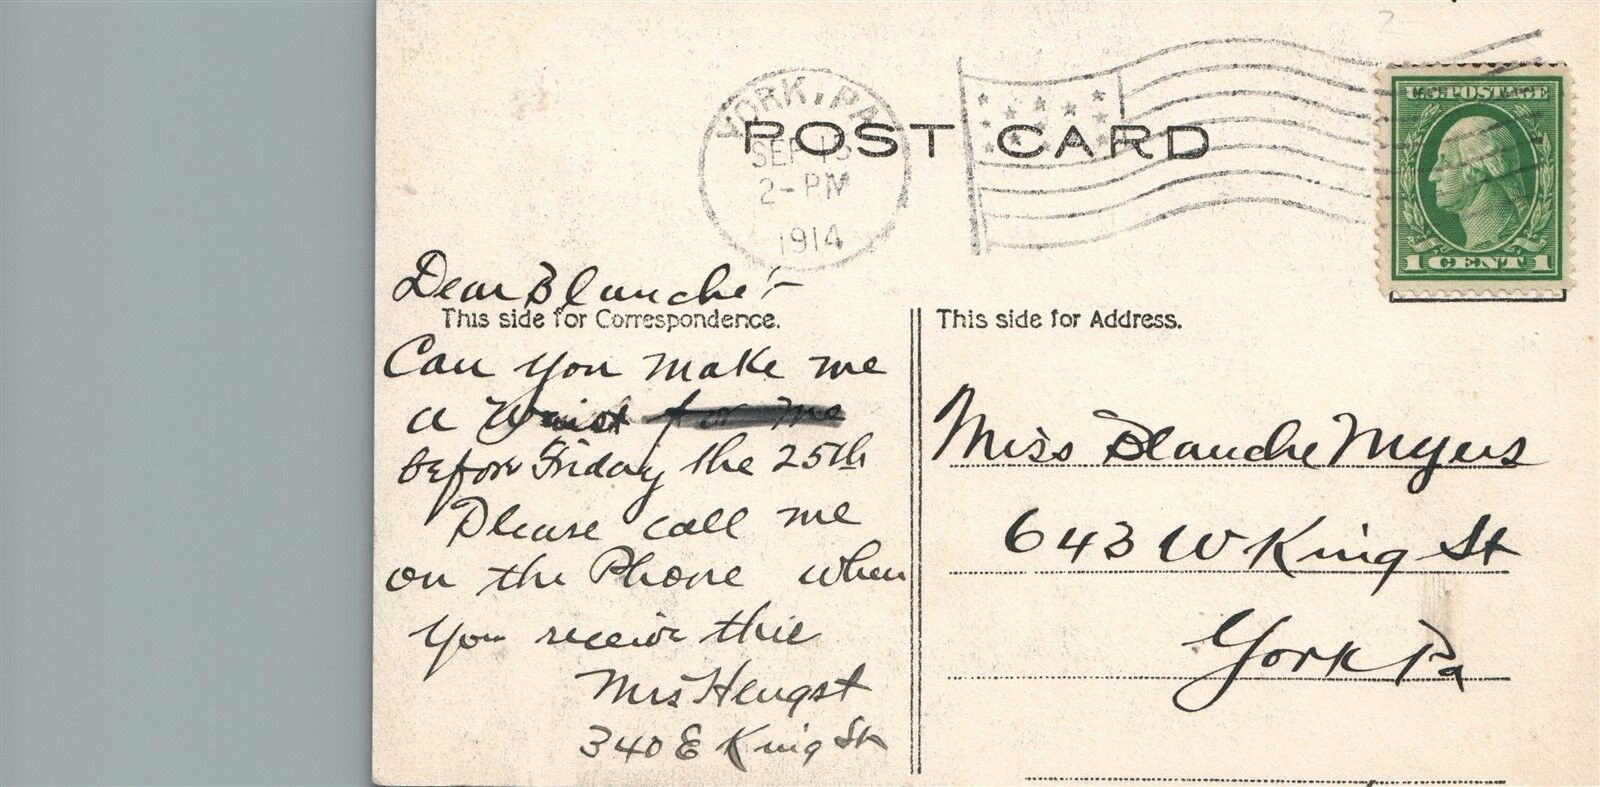 YORK, PA
SEP 15
2-PM
1914
POST CARD
U.S. POSTAGE
1 CENT 1
Dear Blanche:-
This side for Correspondence.
Can you make me
a Waist for me
before Friday the 25th
Please call me
on the Phone when
you receive this
Mrs Hengst
340 E King St
This side for Address.
Miss Blanche Myers
643 W King St
York Pa